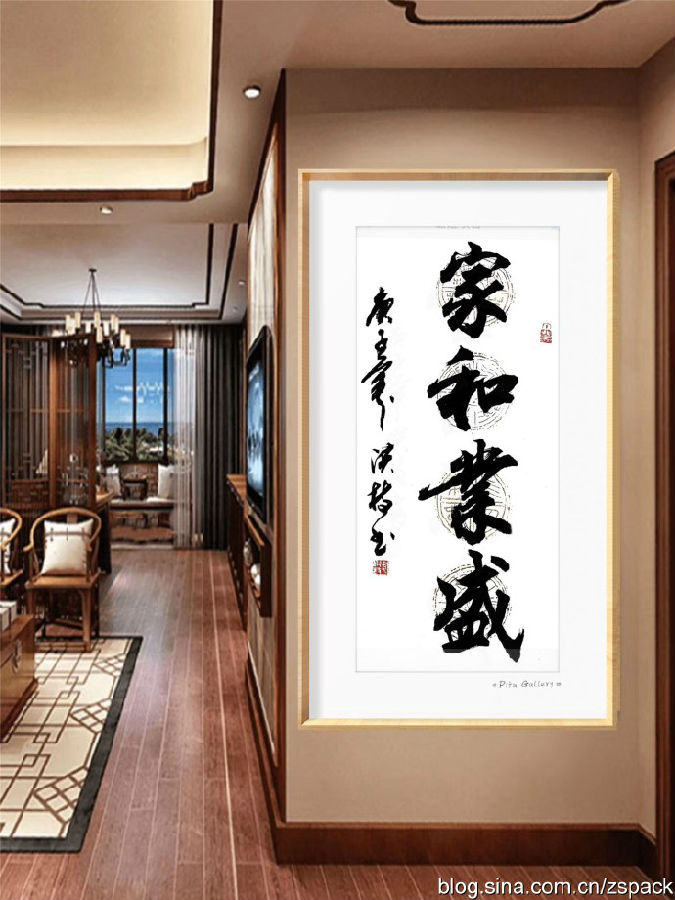 家和業盛
庚子
书
Pita Gallery
blog.sina.com.cn/zspack